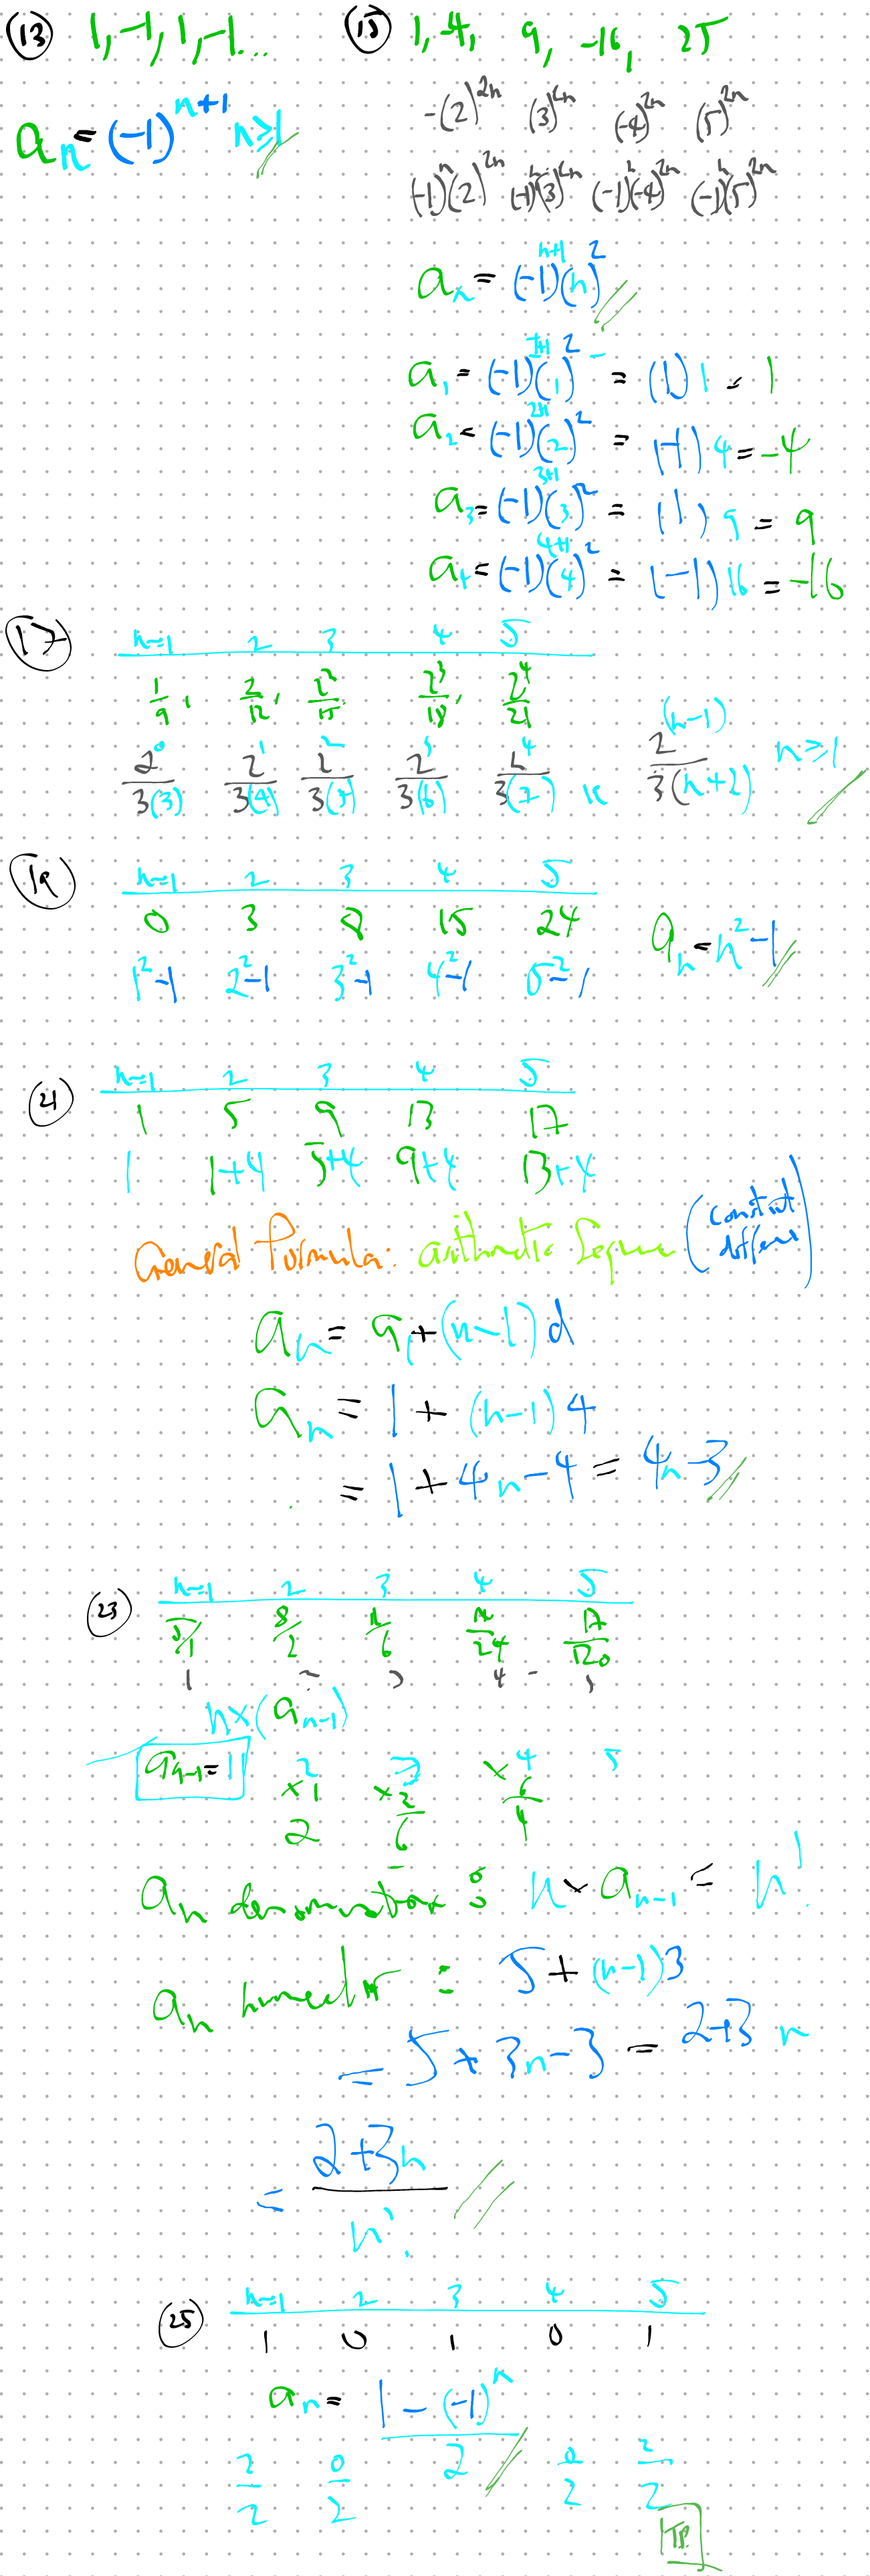 (13) 1, -1, 1, -1...
aₙ = (-1)ⁿ⁺¹ n≥1
(15) 1, -4, 9, -16, 25
-(2)²ⁿ (3)²ⁿ (-4)²ⁿ (5)²ⁿ
(-1)ⁿ(2)²ⁿ (-1)ⁿ(3)²ⁿ (-1)ⁿ(-4)²ⁿ (-1)ⁿ(5)²ⁿ
aₙ = (-1)ⁿ⁺¹(n)²
a₁ = (-1)¹⁺¹(1)² = (1) 1 = 1
a₂ = (-1)²⁺¹(2)² = (-1) 4 = -4
a₃ = (-1)³⁺¹(3)² = (1) 9 = 9
a₄ = (-1)⁴⁺¹(4)² = (-1) 16 = -16
(17) n=1 2 3 4 5
1/9, 2/12, 2²/15, 2³/18, 2⁴/21
2⁰/3(3) 2¹/3(4) 2²/3(5) 2³/3(6) 2⁴/3(7) 2⁽ⁿ⁻¹⁾/3(n+2) n≥1
(19) n=1 2 3 4 5
0 3 8 15 24
1²-1 2²-1 3²-1 4²-1 5²-1
aₙ = n²-1
(21) n=1 2 3 4 5
1 5 9 13 17
1 1+4 5+4 9+4 13+4
General Formula: arithmetic Sequence (constant difference)
aₙ = a₁+(n-1)d
aₙ = 1 + (n-1)4
= 1 + 4n-4 = 4n-3
(23) n=1 2 3 4 5
5/1 8/2 11/6 14/24 17/120
n×(aₙ₋₁)
aₙ₋₁=1 2 3 ×4 5
×1 ×2 6
2 6 4
aₙ denominator: n×aₙ₋₁ = n!
aₙ numerator: 5+(n-1)3
= 5+3n-3 = 2+3n
= (2+3n)/n!
(25) n=1 2 3 4 5
1 0 1 0 1
aₙ = (1-(-1)ⁿ)/2
2/2 0/2 0/2 2/2